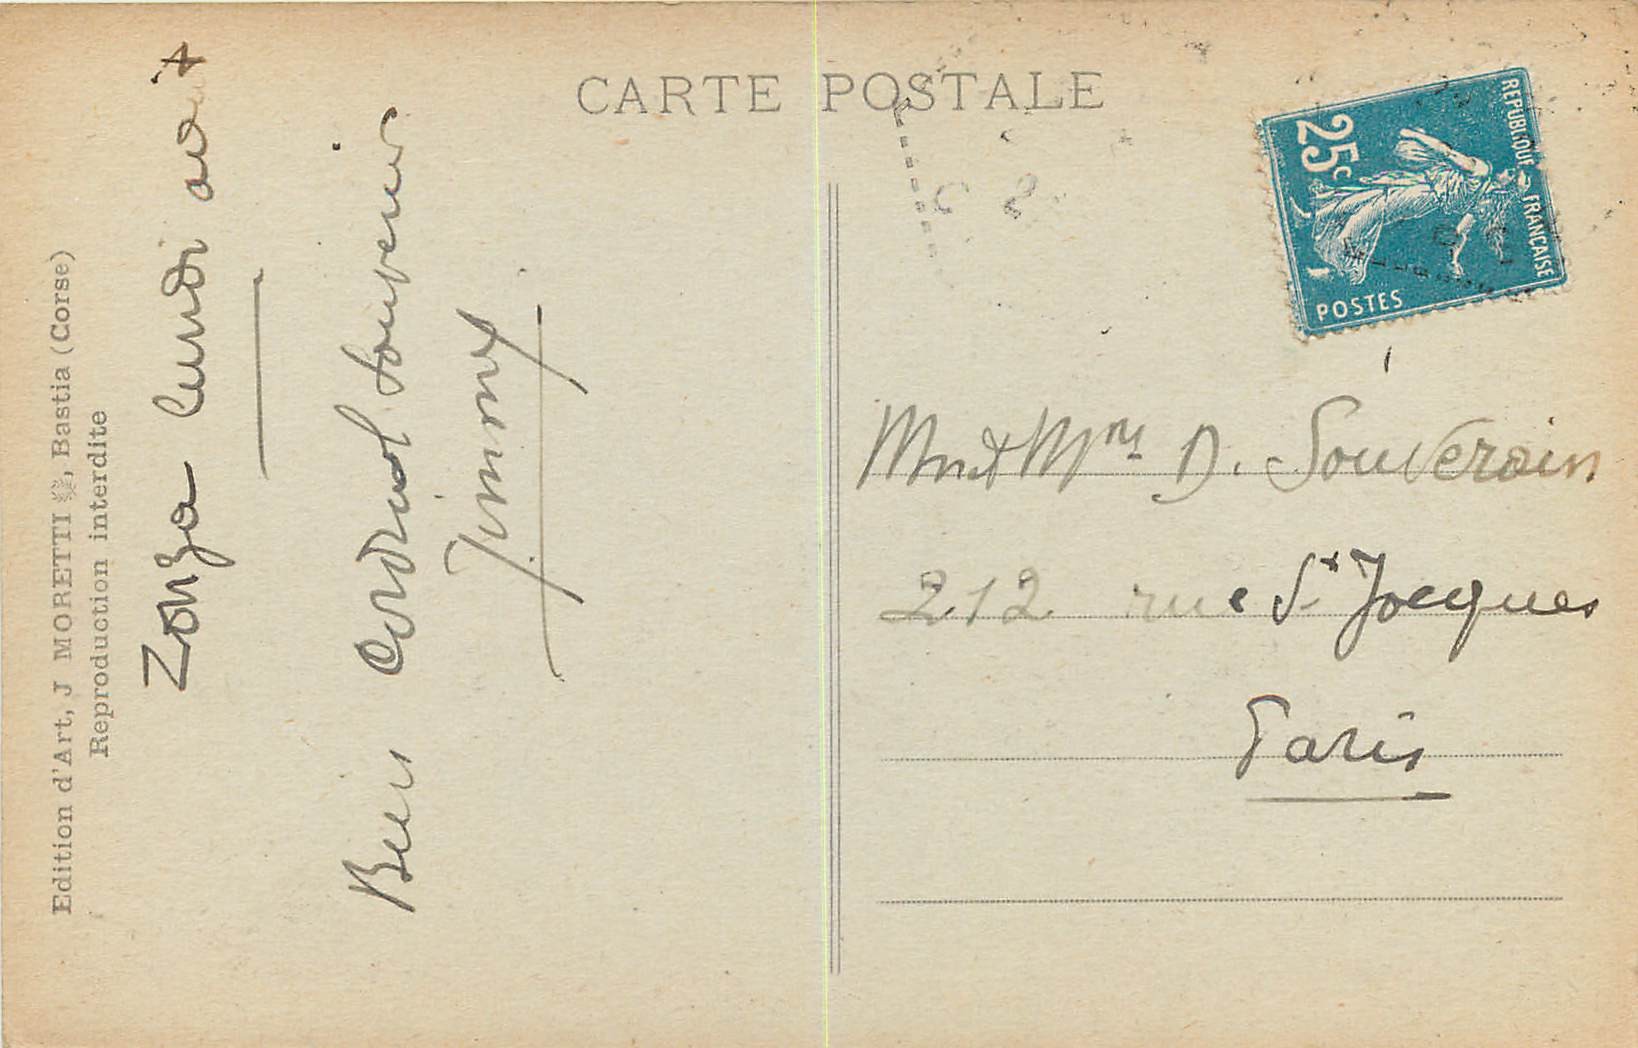 CARTE POSTALE
Edition d'Art, J MORETTI, Bastia (Corse)
Reproduction interdite
Zonza lundi
Bien cordial souvenir
Jimmy
REPUBLIQUE FRANÇAISE
25c
POSTES
Mr et Mme D. Souverain
212 rue St Jacques
Paris